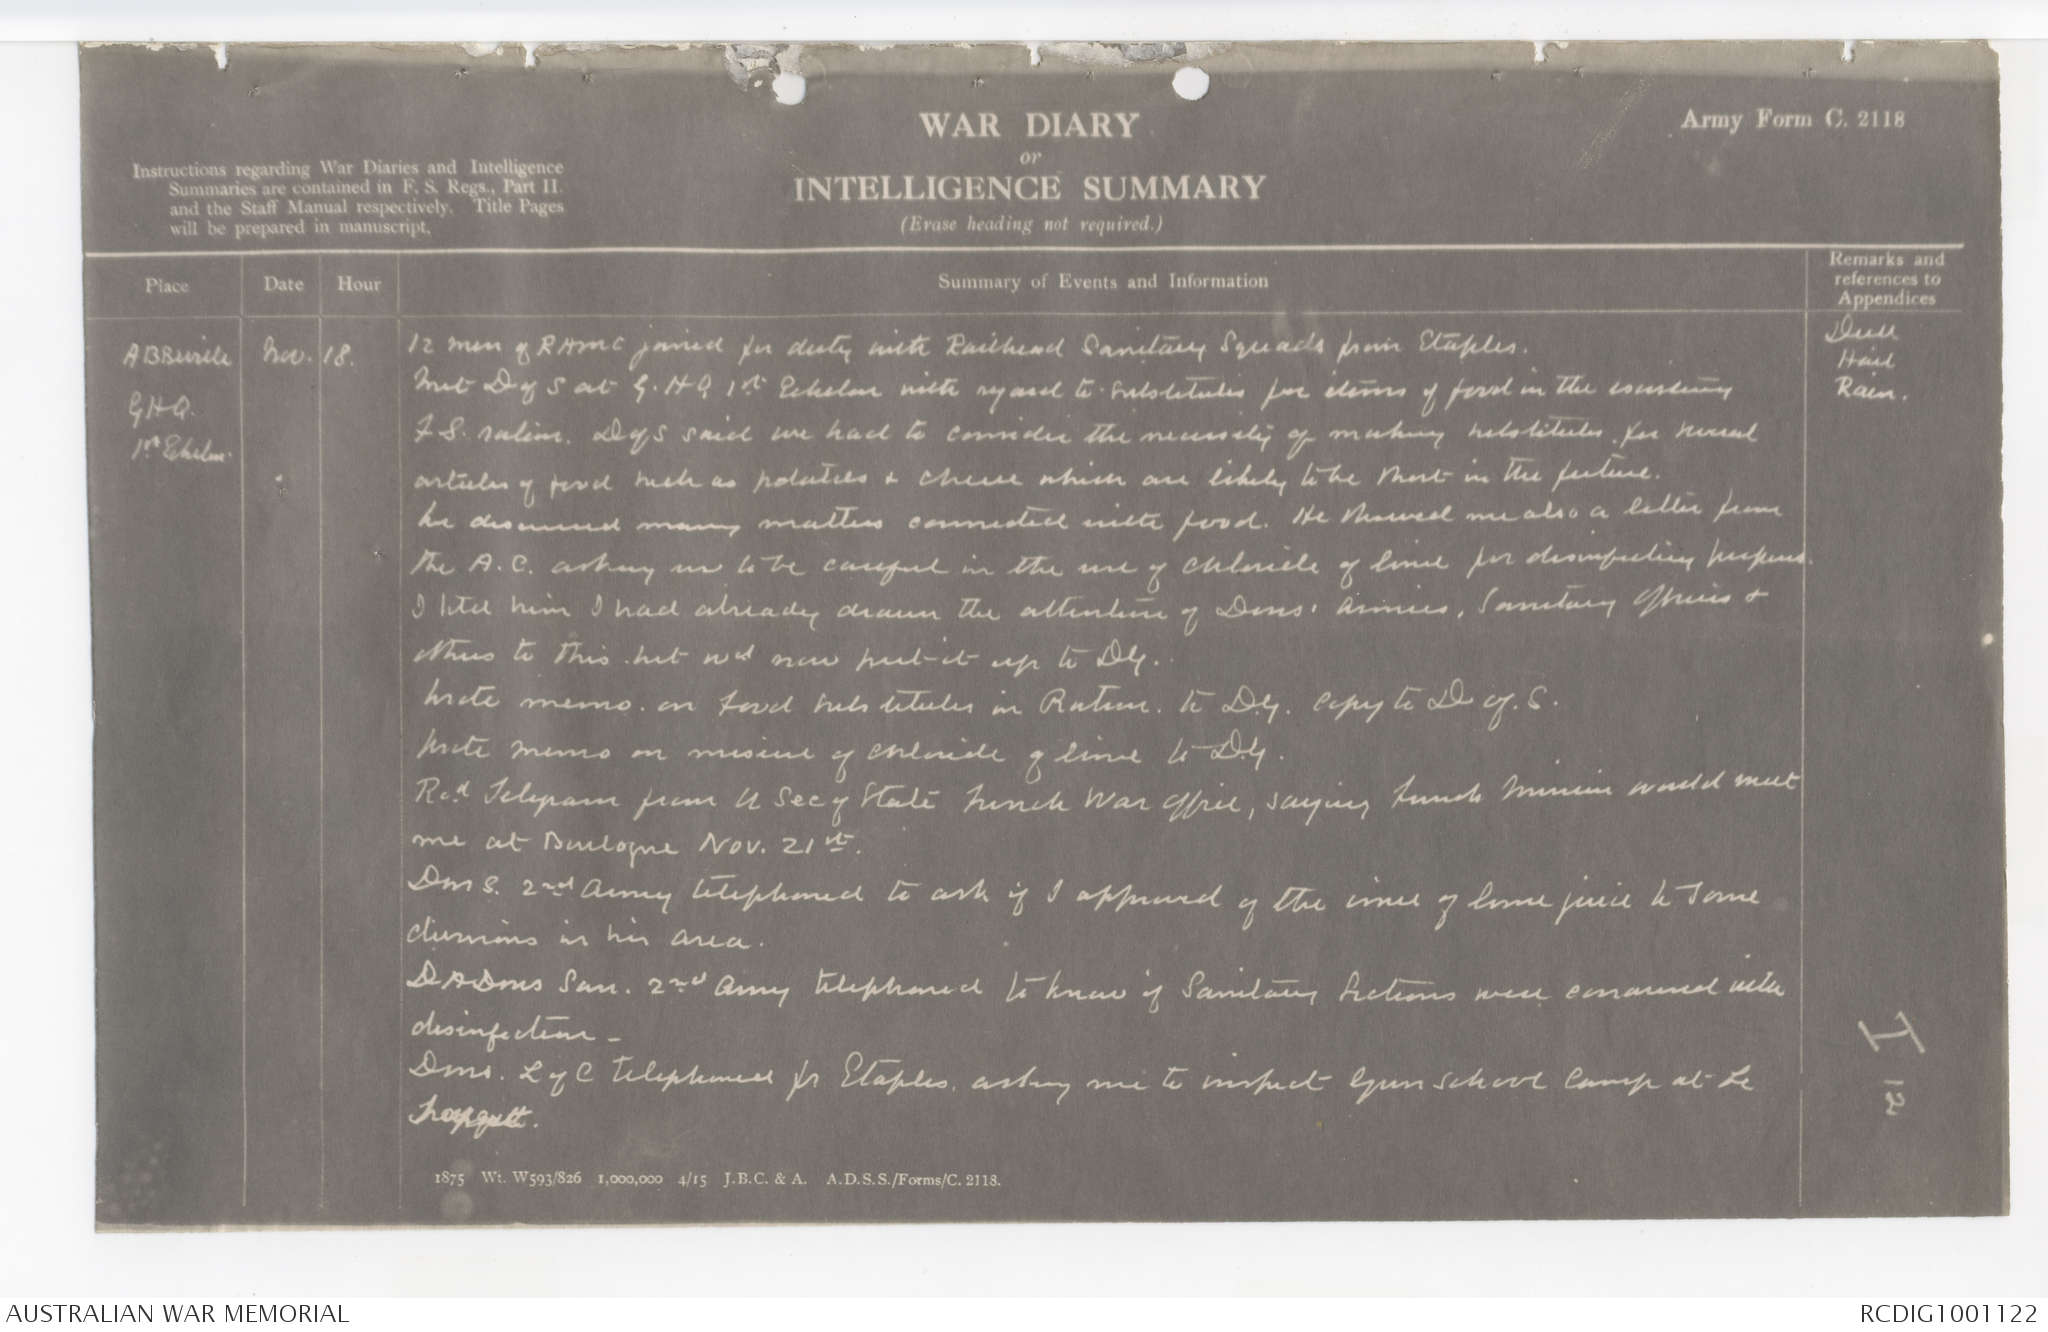 WAR DIARY
or
INTELLIGENCE SUMMARY
(Erase heading not required.)
Army Form C. 2118
Instructions regarding War Diaries and Intelligence
Summaries are contained in F. S. Regs., Part II.
and the Staff Manual respectively. Title Pages
will be prepared in manuscript.
Place
Date
Hour
Summary of Events and Information
Remarks and
references to
Appendices
ABBeville
GHQ.
1st Echelon.
Nov. 18.
12 men of RAMC joined for duty with Railhead Sanitary Squads from Etaples.
Met D of S at G.HQ 1st Echelon with regard to substitutes for items of food in the existing
F.S. ration. D of S said we had to consider the necessity of making substitutes for several
articles of food such as potatoes & cheese which are likely to be short in the future.
he discussed many matters connected with food. He showed me also a letter from
the A.C. asking us to be careful in the use of chloride of lime for disinfecting purposes.
I told him I had already drawn the attention of Dms' Armies, Sanitary Officers &
others to this but wd now put it up to DG.
Wrote memo. on food substitutes in Ration. to D.G. Copy to D of. S.
Wrote memo on misuse of chloride of lime to D.G.
Rcd Telegram from U Sec of State French War Office, saying French Mission would meet
me at Boulogne Nov. 21st.
Dms. 2nd Army telephoned to ask if I approved of the issue of lime juice to some
divisions in his area.
DADms San. 2nd Army telephoned to know if Sanitary Sections were concerned with
disinfection -
Dms. L of C telephoned fr Etaples. asking me to inspect Gun School Camp at Le
Dull
Hail
Rain.
1875 Wt. W593/826 1,000,000 4/15 J.B.C. & A. A.D.S.S./Forms/C. 2118.
AUSTRALIAN WAR MEMORIAL
RCDIG1001122